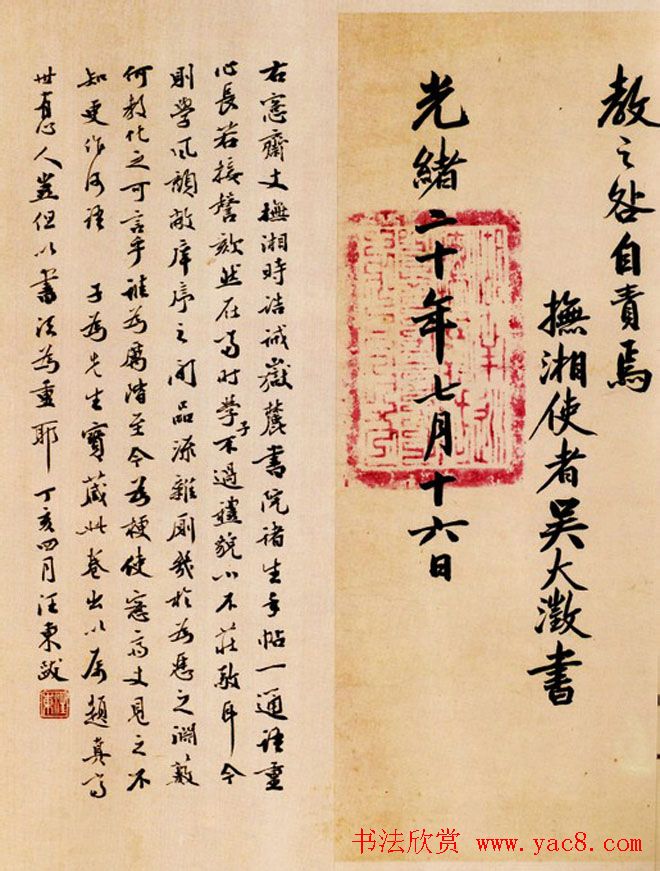 教之咎自责焉
撫湘使者吳大澂書
光緒二十年七月十六日
右愙齋丈撫湘時誥誡嶽麓書院諸生手帖一通語重
心長若接謦欬然在當時學子不過禮貌小不莊敬耳今
則學風頹敝庠序之間品流雜廁幾於為慝之淵藪
何教化之可言乎誰為厲階至今為梗使愙齋丈見之不
知更作何語 子為先生寶藏此卷出以屬題真高
世有心人豈但以書法為重耶 丁亥四月汪東跋
书法欣赏 www.yac8.com